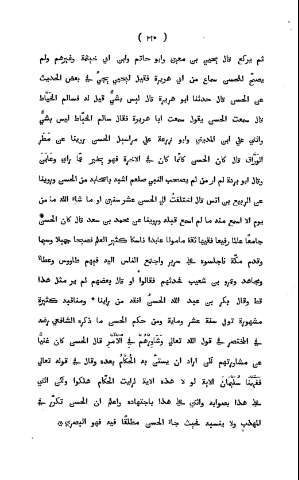 ( ٢١٠ )
ثم يركع قال يحيى بن معين وابو حاتم وابى ابى خيثمة وغيرهم ولم
يصحّ للحسن سماع من ابى هريرة فقيل ليحيى يجىُّ فى بعض الحديث
عن الحسن قال حدثنا ابو هريرة قال ليس بشىُ قيل له فسالم الخيّاط
قال سمعت الحسن يقول سمعت ابا هريرة فقال سالم ليس بشىُ
واثنى على ابن المدينى وابو زرعة على مراسيل الحسن روينا عن مطر
الورّاق قال كان الحسن كانما كان فى الاخرة فهو يخبر عما راى وعاين
وقال ابو بردة لم ار من لم يصحب النبى صلعم اشبه باصحابه من الحسن وروينا
عن الربيع بن انس قال اختلفتُ الى الحسن عشر سنين او ما شاء الله ما من
يوم الا اسمع منه ما لم اسمع قبله وروينا عن محمد بن سعد قال كان الحسن
جامعًا عالمًا رفيعا فقيها ثقة مامونا عابدا ناسكا كثير العلم فصيحا جميلا وسيما
وقدم مكّة فاجلسوه على سرير واجتمع الناس اليه فيهم طاووس وعطاءً
ومجاهد وعمرو بن شعيب فحدثهم فقالوا او قال بعضهم لم ير مثل هذا
قط وقال بكر بن عبد الله الحسنُ افقه من راينا ومناقبه كثيرة
مشهورة توفى سنة عشر وماية ومن حكم الحسن ما ذكره الشافعى رضه
فى المختصر فى قول الله تعالى وشاورهم فى الامر قال الحسن كان غنيًّا
عن مشاورتهم ولكن اراد ان يستن به الحكّام بعده وقال فى قوله تعالى
ففهّمنا سليمان الاية لو لا هذه الاية لرايت الحكّام هلكوا ولكن اثنى
على هذا بصوابه واثنى على هذا باجتهاده واعلم ان الحسن تكرّر فى
المهذب ولا يفسيد فحيث جاءَ الحسن مطلقًا فيه فهو البصرى